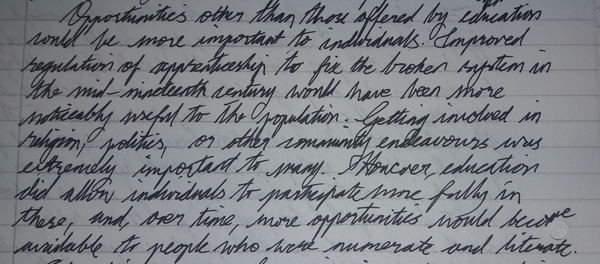 Opportunities other than those offered by education
would be more important to individuals. Improved
regulation of apprenticeship to fix the broken system in
the mid-nineteenth century would have been more
noticeably useful to the population. Getting involved in
religion, politics, or other community endeavours was
extremely important to many. However, education
did allow individuals to participate more fully in
these, and, over time, more opportunities would become
available to people who were numerate and literate.